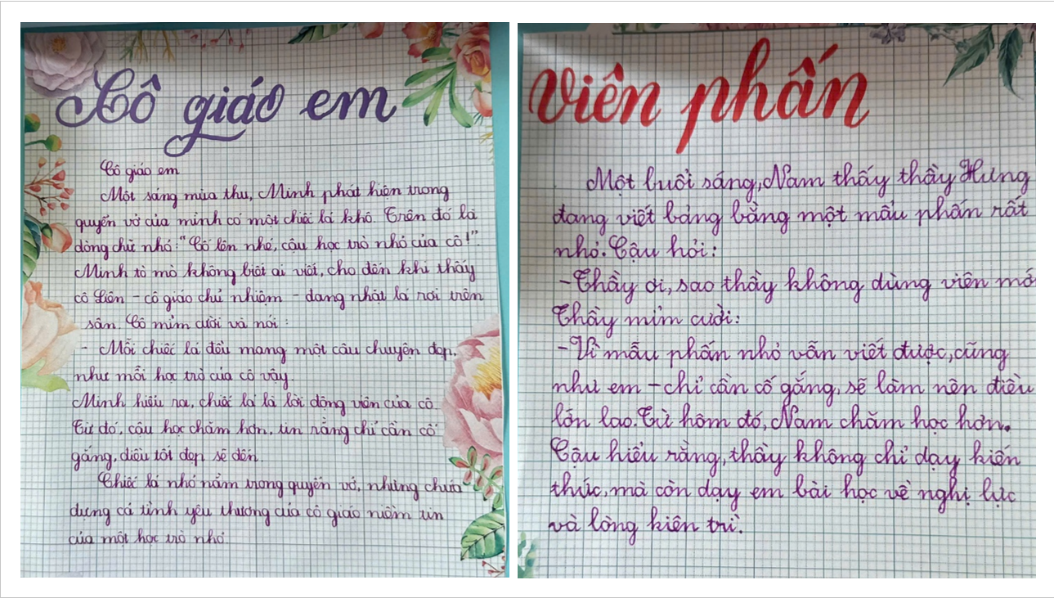 Cô giáo em
Cô giáo em
Một sáng mùa thu, Minh phát hiện trong
quyển vở của mình có một chiếc lá khô. Trên đó là
dòng chữ nhỏ: "Cố lên nhé, cậu học trò nhỏ của cô!"
Minh tò mò không biết ai viết, cho đến khi thấy
cô Liên - cô giáo chủ nhiệm - đang nhặt lá rơi trên
sân. Cô mỉm cười và nói:
- Mỗi chiếc lá đều mang một câu chuyện đẹp,
như mỗi học trò của cô vậy
Minh hiểu ra, chiếc lá là lời động viên của cô.
Từ đó, cậu học chăm hơn, tin rằng chỉ cần cố
gắng, điều tốt đẹp sẽ đến.
Chiếc lá nhỏ nằm trong quyển vở, nhưng chứa
đựng cả tình yêu thương của cô giáo niềm tin
của một học trò nhỏ.
Viên phấn
Một buổi sáng, Nam thấy thầy Hưng
đang viết bảng bằng một mẩu phấn rất
nhỏ. Cậu hỏi:
- Thầy ơi, sao thầy không dùng viên mớ
Thầy mỉm cười:
- Vì mẩu phấn nhỏ vẫn viết được, cũng
như em - chỉ cần cố gắng, sẽ làm nên điều
lớn lao. Từ hôm đó, Nam chăm học hơn.
Cậu hiểu rằng, thầy không chỉ dạy kiến
thức, mà còn dạy em bài học về nghị lực
và lòng kiên trì.